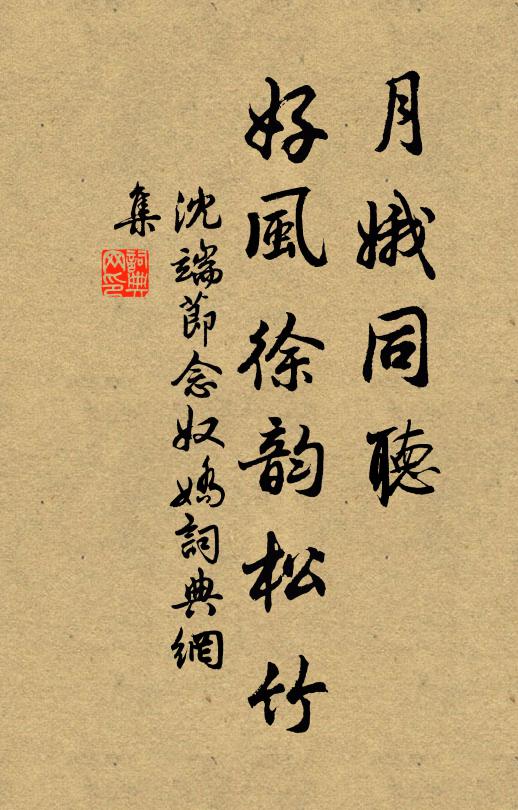 月娥同聽
好風徐韵松竹
沈端節念奴嬌詞典網
集
詞典
网印